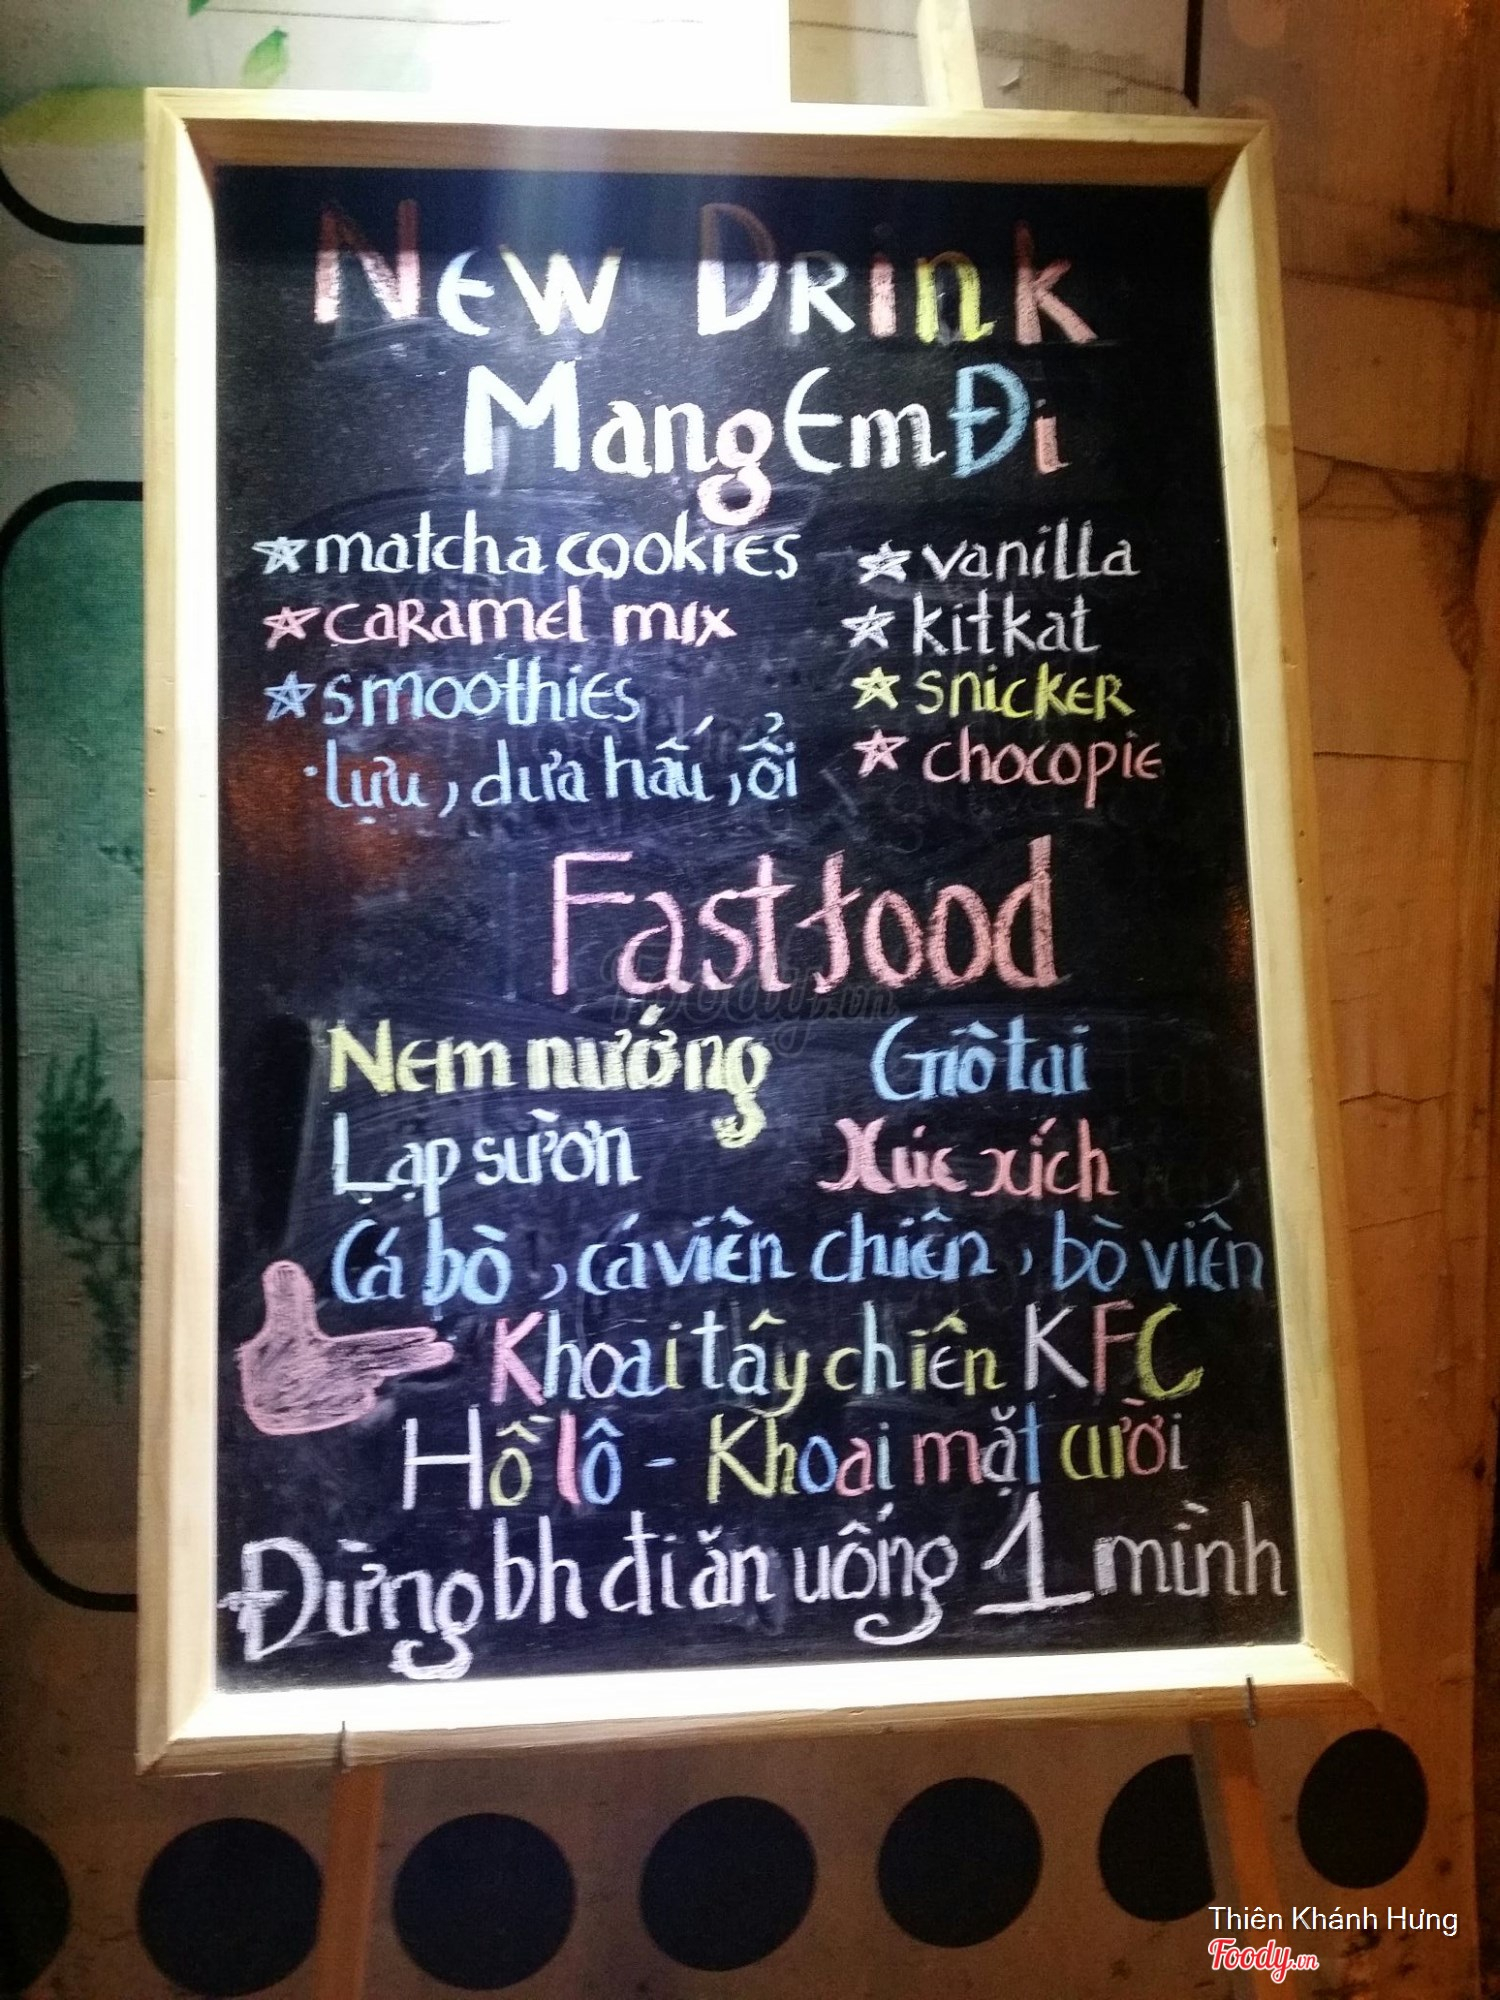 New Drink
Mang Em Đi
matcha cookies
caramel mix
smoothies
lựu, dưa hấu, ổi
vanilla
kitkat
snicker
chocopie
Fastfood
Nem nướng
Giò tai
Lạp sườn
Xúc xích
Cá bò, cá viên chiên, bò viên
Khoai tây chiên KFC
Hồ lô - Khoai mặt cười
Đừng bh đi ăn uống 1 mình
Foody.vn
Thiên Khánh Hưng
Foody.vn